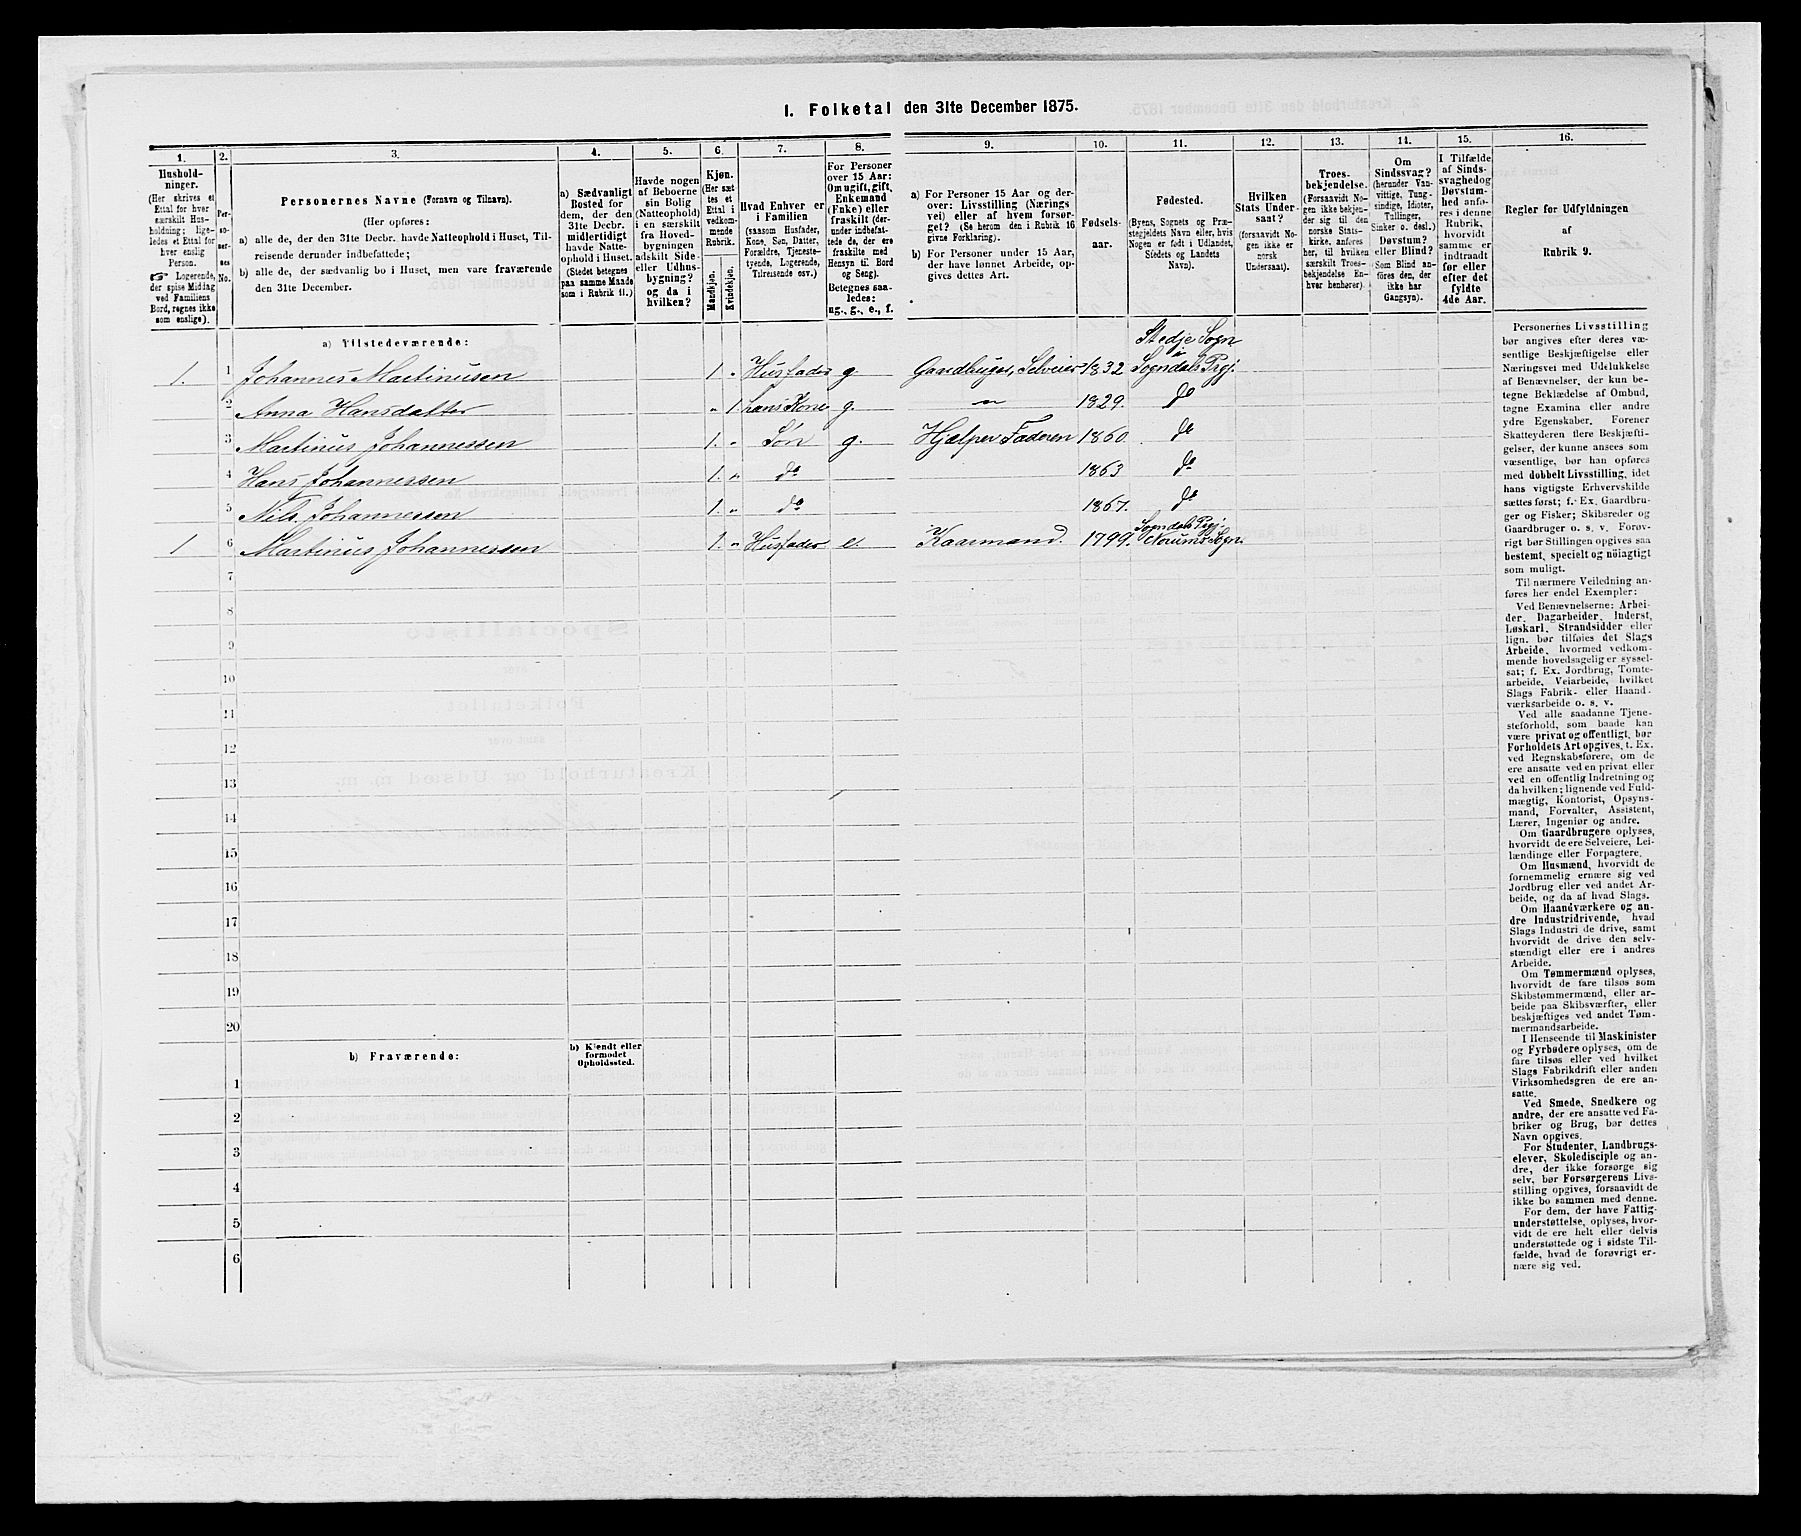 I. Folketal den 31te December 1875.
1. 2. 3. 4. 5. 6. 7. 8. 9. 10. 11. 12. 13. 14. 15. 16.
Hushold-
ninger.
(Her skrives et
Ettal for hver
særskilt Hus-
holdning; lige-
ledes et Ettal for
hver enslig
Person.
☞ Logerende,
der spise Middag
ved Familiens
Bord, regnes ikke
som enslige).
Per-
so-
ner-
nes
No.
Personernes Navne (Fornavn og Tilnavn).
(Her opføres:
a) alle de, der den 31te Decbr. havde Natteophold i Huset, Til-
reisende derunder indbefattede;
b) alle de, der sædvanlig bo i Huset, men vare fraværende
den 31te December.
a) Sædvanligt
Bosted for
dem, der den
31te Decbr.
midlertidigt
havde Natte-
ophold i Huset.
(Stedet betegnes
paa samme Maade
som i Rubrik 11.)
Havde nogen
af Beboerne
sin Bolig
(Natteophold)
i en særskilt
fra Hoved-
bygningen
adskilt Side-
eller Udhus-
bygning?
og da i
hvilken?
Kjøn.
(Her sæt
tes et
Ettal i
vedkom-
mende
Rubrik.
Mandkjøn.
Kvindekjøn.
Hvad Enhver er
i Familien
(saasom Husfader,
Kone, Søn, Datter,
Forældre, Tjeneste-
tyende, Logerende,
Tilreisende osv.)
For Personer
over 15 Aar:
Om ugift, gift,
Enkemand
(Enke) eller
fraskilt (der-
under indbefat-
tede de, der ere
fraskilte med
Hensyn til Bord
og Seng).
Betegnes saa-
ledes:
ug., g., e., f.
a) For Personer 15 Aar og der-
over: Livsstilling (Nærings
vei) eller af hvem forsør-
get? (Se herom den i Rubrik 16
givne Forklaring).
b) For Personer under 15 Aar,
der have lønnet Arbeide, op-
gives dettes Art.
Fødsels-
aar.
Fødested.
(Byens, Sognets og Præ-
stegjeldets Navn eller, hvis
Nogen er født i Udlandet,
Stedets og Landets
Navn).
Hvilken
Stats Under-
saat?
(forsaavidt No-
gen ikke er
norsk
Undersaat).
Troes-
bekjendelse.
(Forsaavidt No-
gen ikke bekjen-
der sig til den
norske Stats-
kirke, anføres
her, til hvilken
særskilt Troes-
bekjendelse En-
hver henhører).
Om
Sindssvag?
(herunder Van-
vittige, Tung-
sindige, Idioter,
Tullinger,
Sinker o. desl.)
Døvstum?
eller Blind?
(Som Blind an-
føres den, der
ikke har
Gangsyn).
I Tilfælde
af Sinds-
svaghed og
Døvstum-
hed anfø-
res i denne
Rubrik,
hvorvidt
samme er
indtraadt
før eller
efter det
fyldte
4de Aar.
Regler for Udfyldningen
af
Rubrik 9.
a) Tilstedeværende:
1. 1 Johannes Martinusen 1. „ Husfader g. Gaardbruger, Selveier 1832 Stedje Sogn i Sogndals Prgj.
2 Anna Hansdatter „ 1. hans Kone g. „ 1829. do
3 Martinus Johannessen 1. „ Søn g. Hjælper Faderen 1860. do
4 Hans Johannessen 1. „ do 1863 do
5 Nils Johannessen 1. „ do 1867. do
1 6 Martinus Johannessen 1. „ Husfader e. Kaarmand. 1799. Sogndals Prgj. Norums Sogn.
7
8
9
10
11
12
13
14
15
16
17
18
19
20
b) Fraværende:
b) Kjendt eller
formodet
Opholdssted.
1
2
3
4
5
6
Personernes Livsstilling
bør angives efter deres væ-
sentlige Beskjæftigelse eller
Næringsvei med Udelukkelse
af Benævnelser, der kun be-
tegne Beklædelse af Ombud,
tagne Examina eller andre
ydre Egenskaber. Forener
Skatteyderen flere Beskjæfti-
gelser, der kunne ansees som
væsentlige, bør han opføres
med dobbelt Livsstilling, idet
hans vigtigste Erhvervskilde
sættes først; f. Ex. Gaardbru-
ger og Fisker; Skibsreder og
Gaardbruger o. s. v. Forøv-
rigt bør Stillingen opgives saa
bestemt, specielt og nøiagtigt
som muligt.
Til nærmere Veiledning an-
føres her endel Exempler:
Ved Benævnelserne: Arbei-
der, Dagarbeider, Inderst,
Løskarl, Strandsidder eller
lign. bør tilføies det Slags
Arbeide, hvormed vedkom-
mende hovedsagelig er syssel-
sat; f. Ex. Jordbrug, Tomte-
arbeide, Veiarbeide, hvilket
Slags Fabrik- eller Haand-
værksarbeide o. s. v.
Ved alle saadanne Tjene-
steforhold, som baade kan
være privat og offentligt, bør
Forholdets Art opgives, t. Ex.
ved Regnskabsførere, om de
ere ansatte ved en privat eller
ved en offentlig Indretning og
da hvilken; lignende ved Fuld-
mægtig, Kontorist, Opsyns-
mand, Forvalter, Assistent,
Lærer, Ingeniør og andre.
Om Gaardbrugere oplyses,
hvorvidt de ere Selveiere, Lei-
lændinge eller Forpagtere.
Om Husmænd, hvorvidt de
fornemmelig ernære sig ved
Jordbrug eller ved andet Ar-
beide, og da af hvad Slags.
Om Haandværkere og an-
dre Industridrivende, hvad
Slags Industri de drive, samt
hvorvidt de drive den selv-
stændigt eller ere i andres
Arbeide.
Om Tømmermænd oplyses,
hvorvidt de fare tilsøs som
Skibstømmermænd, eller ar-
beide paa Skibsværfter, eller
beskjæftiges ved andet Tøm-
mermandsarbeide.
I Henseende til Maskinister
og Fyrbødere oplyses, om de
fare tilsøs eller ved hvilket
Slags Fabrikdrift eller anden
Virksomhedsgren de ere an-
satte.
Ved Smede, Snedkere og
andre, der ere ansatte ved Fa-
briker og Brug, bør dettes
Navn opgives.
For Studenter, Landbrugs-
elever, Skoledisciple og an-
dre, der ikke forsørge sig
selv, bør Forsørgerens Livs-
stilling opgives, forsaavidt de
ikke bo sammen med denne.
For dem, der have Fattig-
understøttelse, oplyses, hvor-
vidt de ere helt eller delvis
understøttede og i sidste Til-
fælde, hvad de forøvrigt er-
nære sig ved.